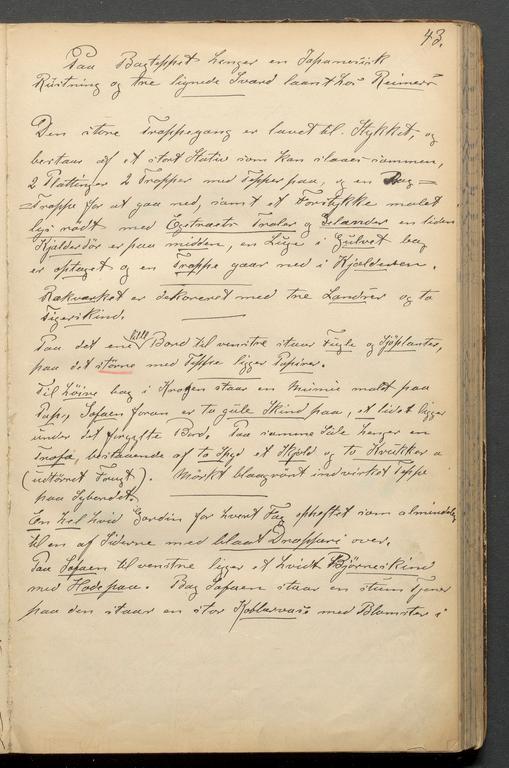 43.
Paa Bagteppet henger en Japanesisk
Rustning og tre lignede Sværd laant hos Reimers
Den store Trappegang er lavet til Stykket, og
bestaar af et stort Stativ som kan slaaes sammen,
2 Plattinger 2 Trapper med Tepper paa, og en Bag=
=trappe for at gaa ned, samt et Forstykke malet
lys rødt med Extraets Traler og Gelænder en liden
Kjælderdør er paa midden, en Luge i Gulvet bag
er optaget og en Trappe gaar ned i Kjælderen.
Rækværket er dekoreret med tre Landser og to
Tigerskind.
Paa det ene lille Bord til venstre staar Fugle og Sjöplanter,
paa det större med Teppe ligger Papirer.
Til höire bag i Krogen staar en Mumie malt paa
Pap, Sofaen foran er to gule Skind paa, et lidet ligger
under det forgyldte Bord. Paa samme Side henger en
Trofæ, bestaaende af to Spyd et Skjold og to Krukker a
(udtörret Frugt). Mörkt blaagrönt indvirket Teppe
paa Sybordet.
En hel hvid Gardin for hvert Fag opheftet som almindelig
til en af Siderne med blaat Drapperi over.
Paa Sofaen til venstre ligger et hvidt Björneskind
med Hode paa. Bag Sofaen staar en stum Tjener
paa den staar en stor Koblarvase med Blomster i